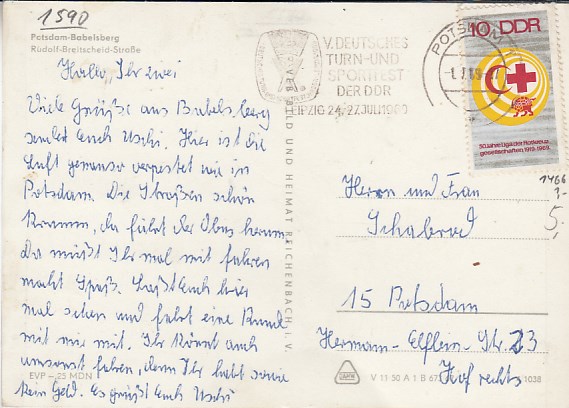 1590
Potsdam-Babelsberg
Rudolf-Breitscheid-Straße
Hallo, Ihr zwei
Viele Grüße aus Babelsberg
sendet Euch Uschi. Hier ist die
Luft genauso verpestet wie in
Potsdam. Die Straßen schön
krumm, da fährt der Obus herum.
Da müßt Ihr mal mit fahren
macht Spaß. Laßt Euch hier
mal sehen und fahrt eine Runde
mit mir mit. Ihr könnt auch
umsonst fahren, denn Ihr habt sowie
kein Geld. Es grüßt Euch Uschi
EVP –,25 MDN
VEB BILD UND HEIMAT REICHENBACH I. V.
V. DEUTSCHES
TURN- UND
SPORTFEST
DER DDR
LEIPZIG 24.-27. JULI 1969
POTSDAM
10 DDR
50 Jahre Liga der Rotkreuz-
gesellschaften 1919-1969
1466
5,-
Herrn und Frau
Schabrod
15 Potsdam
Hermann-Elflein-Str. 23
Hof rechts
V 11 50 A 1 B 67
1038